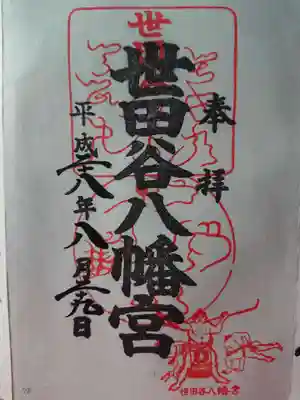 奉拝
世田谷八幡宮
平成二十八年八月二十九日
世
世田谷八幡宮